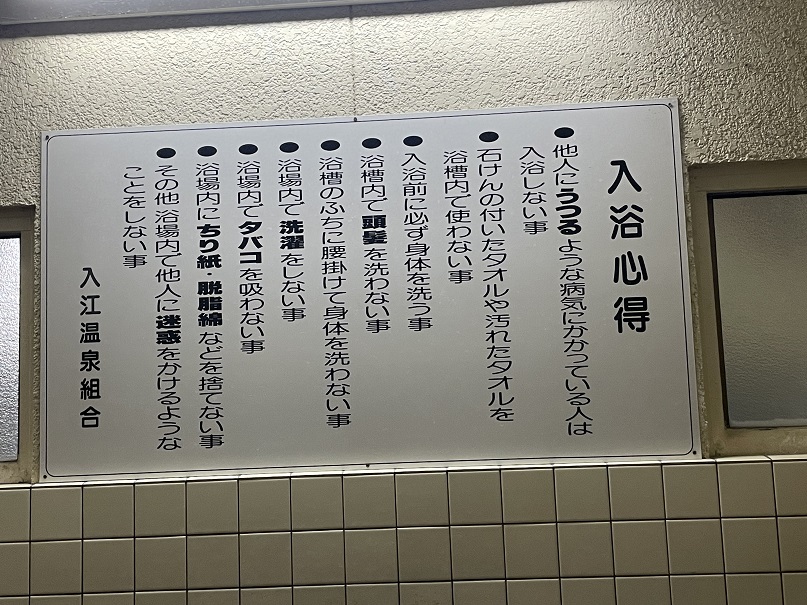 入浴心得
●他人にうつるような病気にかかっている人は
入浴しない事
●石けんの付いたタオルや汚れたタオルを
浴槽内で使わない事
●入浴前に必ず身体を洗う事
●浴槽内で頭髪を洗わない事
●浴槽のふちに腰掛けて身体を洗わない事
●浴場内で洗濯をしない事
●浴場内でタバコを吸わない事
●浴場内にちり紙・脱脂綿などを捨てない事
●その他浴場内で他人に迷惑をかけるような
ことをしない事
入江温泉組合